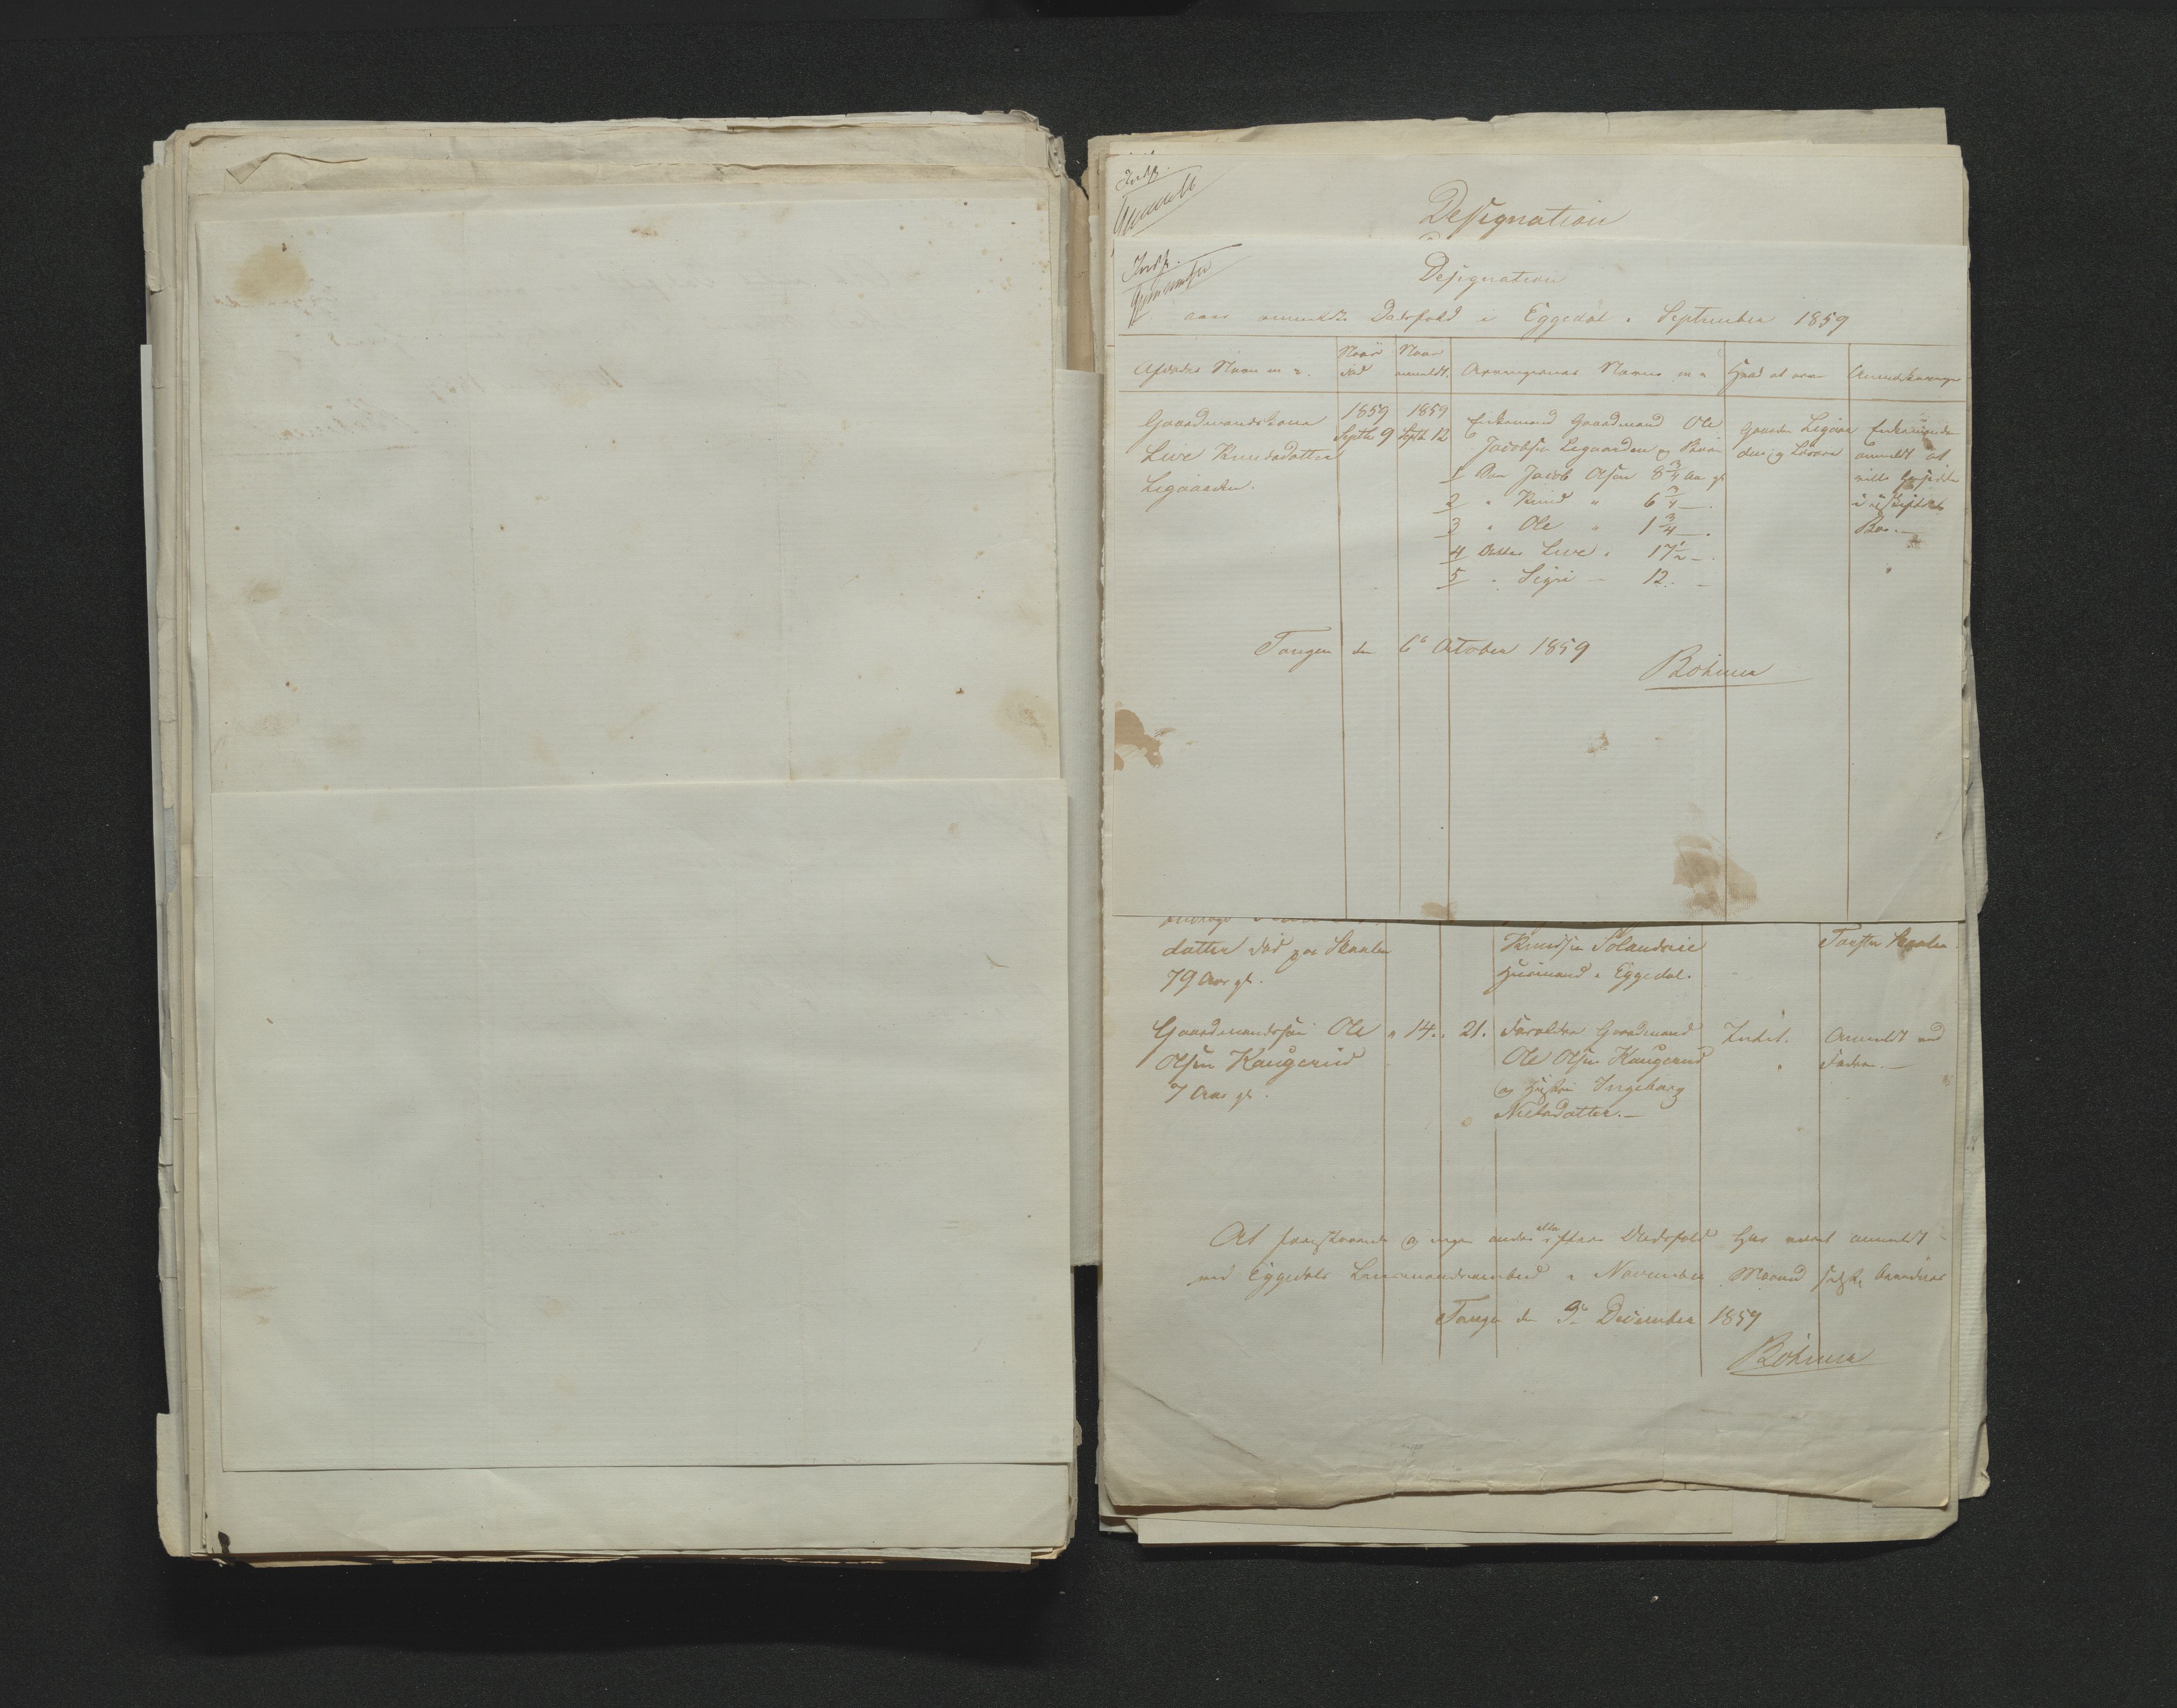 Designation
Designation
over anmeldte Dødsfald i Eggedal i September 1859
Afdødes Navn m v.
Naar død
Naar anmeldt.
Arvingernes Navne m v
Hvad at arve
Anmærkninger
Gaardmandskone
Live Knudsdatter
Ligaarden.
1859
Septbr 9
1859
Septb 12
Enkemand Gaardmand Ole
Jacobsen Ligaarden og Børn
1 Søn Jacob Olsen 8 3/4 Aar gl
2 " Knud " 6 3/4 —
3 " Ole " 1 3/4 —
4 Datter Live " 17 1/2 —
5 " Sigri — 12. —
Gaarden Ligaar
den og Løsøre
Enkemanden
anmeldt at
ville hensidde
i uskiftet
Boe. —
Tangen den 6te October 1859
Böhmer
datter død paa Skaalen
79 Aar gl.
Knudsen Solandseie
Husmand i Eggedal.
Torsten Skaalen
Gaardmandssøn Ole
Olsen Kaugerud
7 Aar gl.
" 14.
21.
Forældre Gaardmand
Ole Olsen Kaugerud
og Hustru Ingeborg
Nielsdatter. —
Intet.
Anmeldt ved
Faderen. —
At foranstaaende og ingen andre eller flere Dødsfald har været anmeldt
ved Eggedals Lensmandsembed i November Maaned
Tangen den 9de December 1859
Böhmer